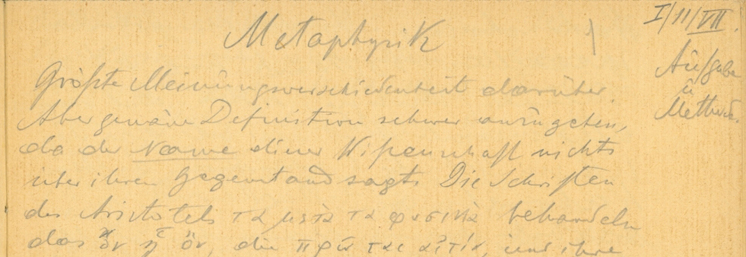 Metaphysik
I/11/VII.
1
Aufgabe
u
Methode.
Größte Meinungsverschiedenheit darüber.
Aber genaue Definition schwer anzugeben,
da der Name dieser Wissenschaft nichts
über ihren Gegenstand sagt. Die Schriften
des Aristoteles τα μετα τα φυσικα behandeln
das ὂν ᾗ ὄν, die πρῶται αἰτίαι, und ihre